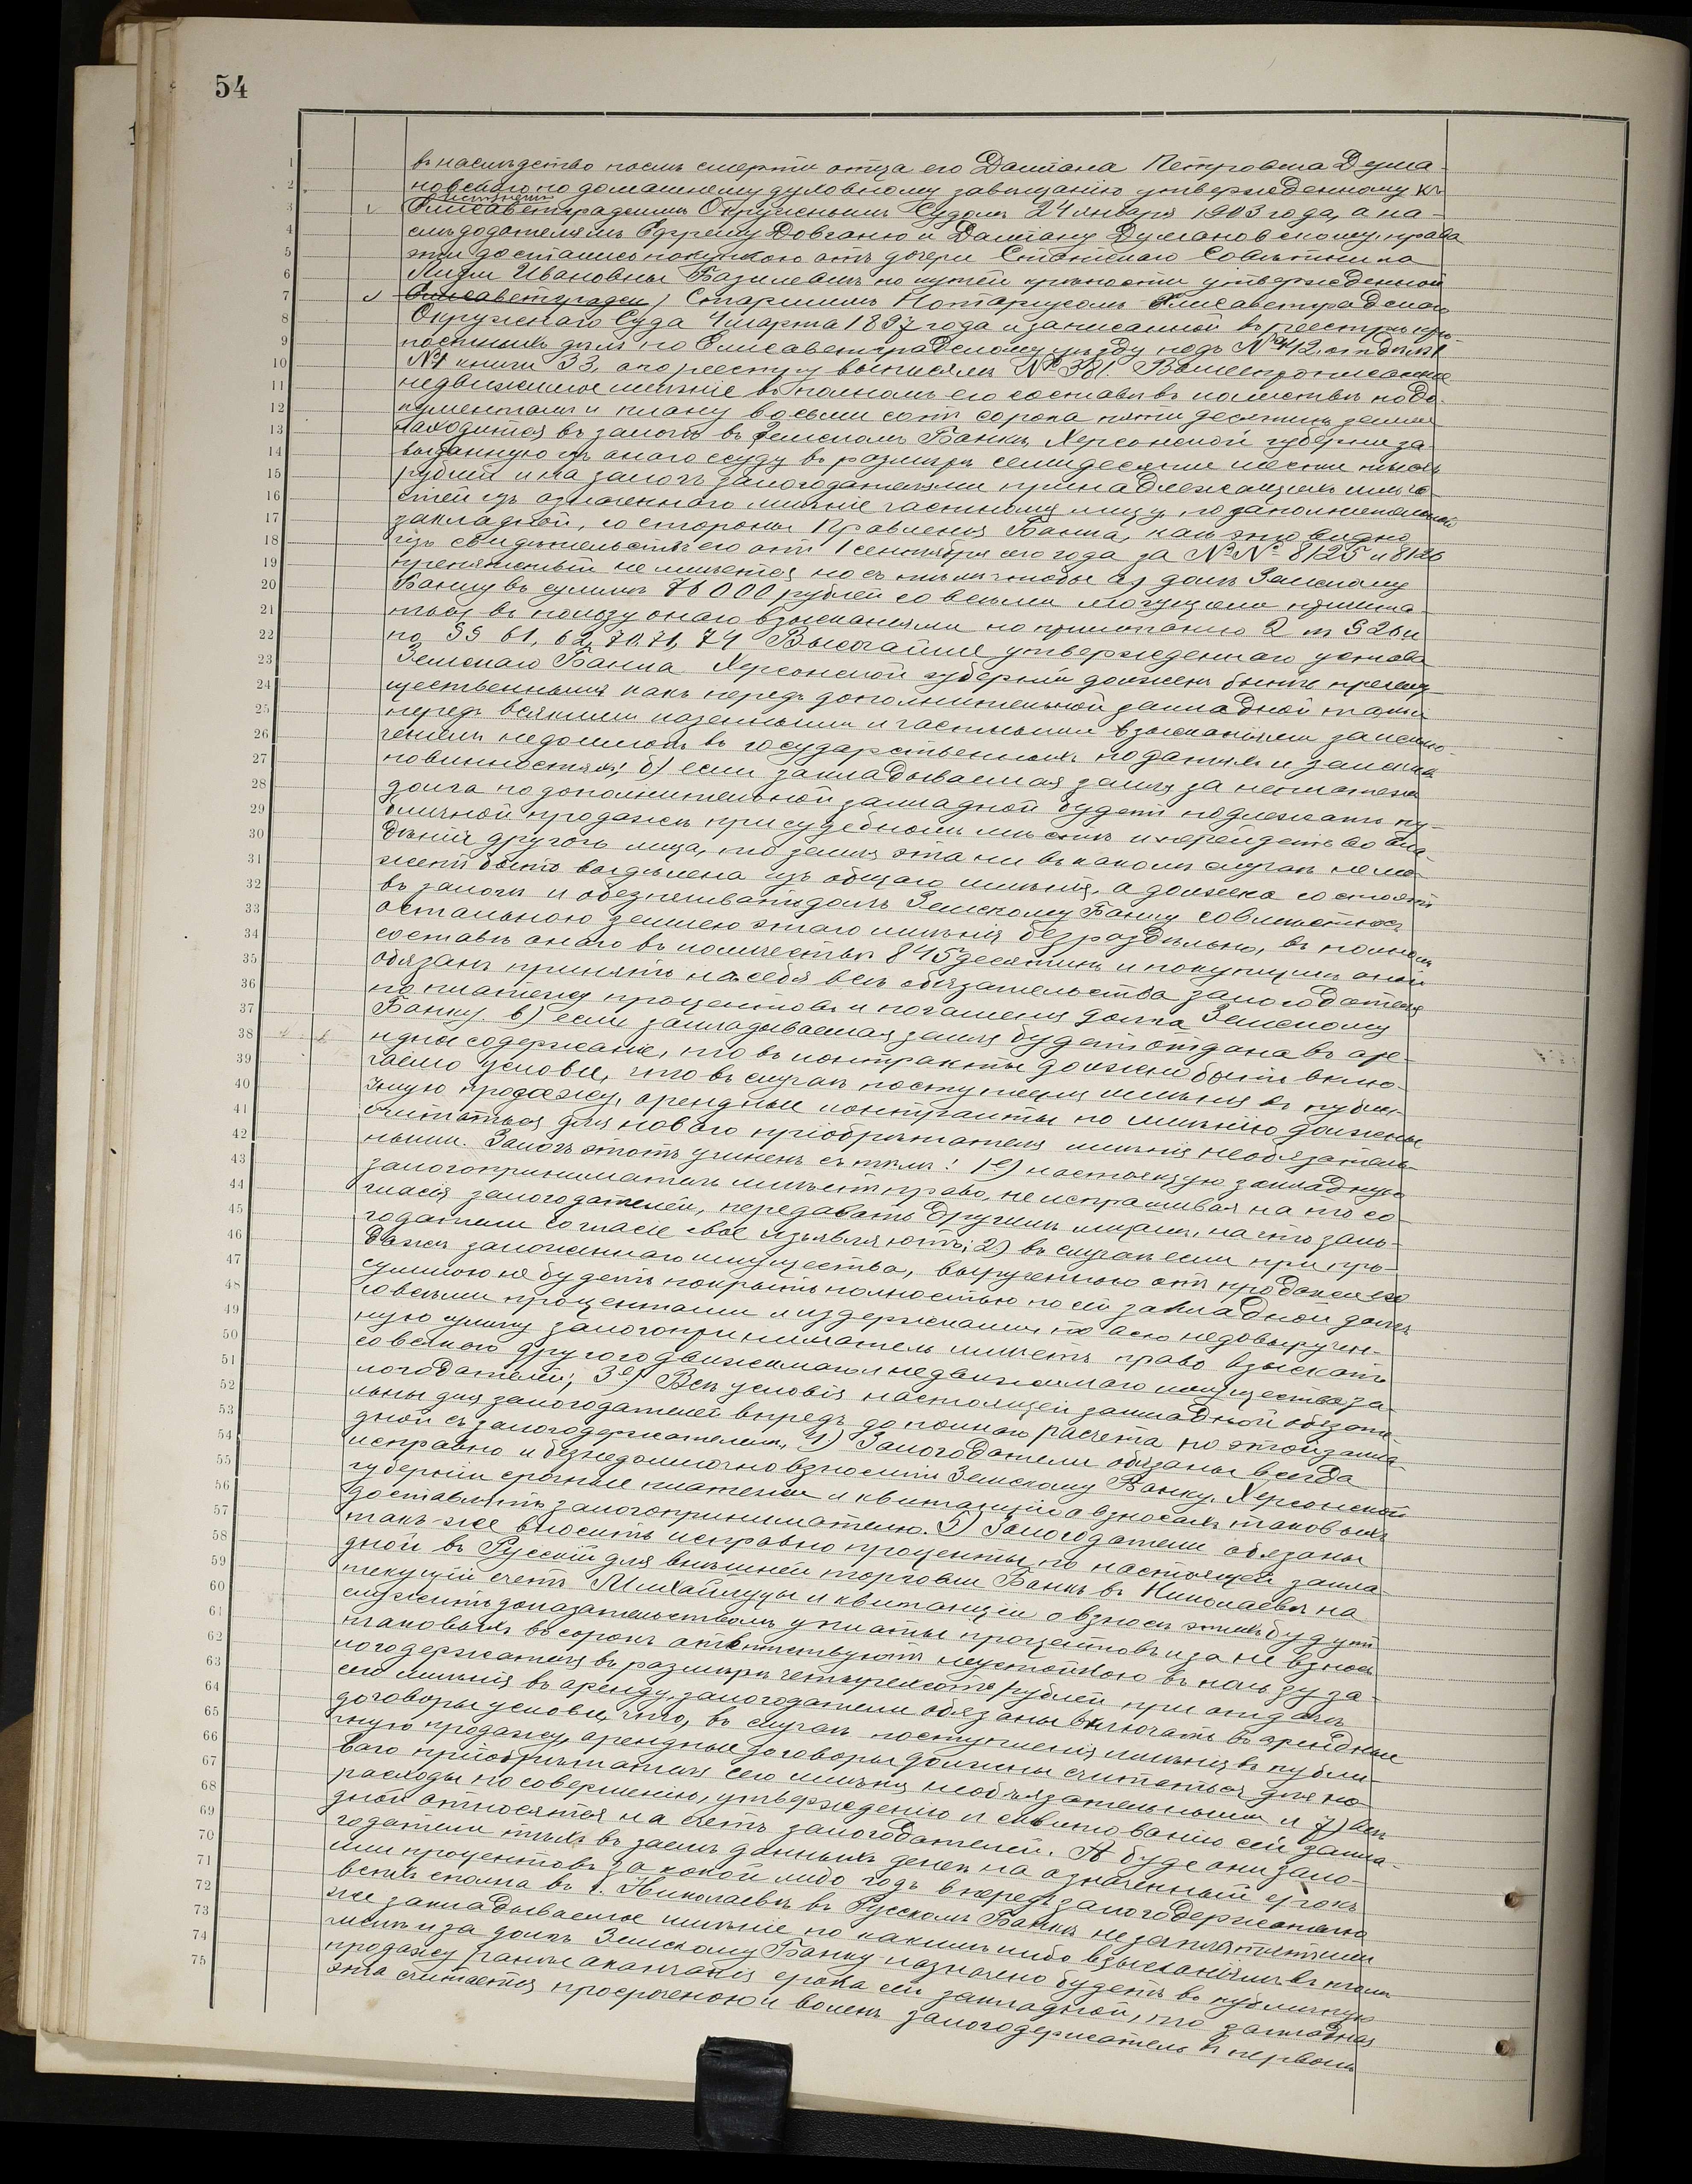 54
въ наслѣдство послѣ смерти отца его Дамiана Петровича Дума-
новскаго по домашнему духовному завѣщанiю утвержденному къ
исполненiю
Елисаветградскимъ Окружнымъ Судомъ 24 января 1903 года, а на-
слѣдодателямъ Ефрему Довганю и Дамiану Думановскому права
эти достались покупкою отъ дочери Статскаго Совѣтника
Лидiи Ивановны Базилевичъ по купчей крѣпости утвержденной
Елисаветградск) Старшимъ Нотарiусомъ Елисаветградскаго
Окружнаго Суда 4 марта 1897 года и записанной въ реестръ крѣ-
постныхъ дѣлъ по Елисаветградскому уѣзду подъ № 412, отдѣлъ 1
№ 1 книги 33, а по реестру выписямъ № 381. Вышепрописанное
недвижимое имѣнiе въ полномъ его составѣ въ количествѣ по до-
кументамъ и плану восьми сотъ сорока пяти десятинъ земли
находится въ залогѣ въ Земскомъ Банкѣ Херсонской губернiи за
выданную изъ онаго ссуду въ размѣрѣ семидесяти шести тысячъ
рублей и на залогъ залогодателями принадлежащихъ имъ ча-
стей изъ означеннаго имѣнiе частному лицу, по дополнительной
закладной, со стороны Правленiя Банка, какъ это видно
изъ свидѣтельствъ его отъ 1 сентября сего года за №№ 8125 и 8126
препятствiй не имѣется но съ тѣмъ чтобы а) долгъ Земскому
Банку въ суммѣ 76000 рублей со всѣми могущими причита-
ться въ пользу онаго взысканiями по примѣчанiю 2 къ § 26 и
по §§ 61, 62, 70, 71, 74 Высочайше утвержденнаго устава
Земскаго Банка Херсонской губернiи долженъ быть преиму-
щественнымъ какъ передъ дополнительной закладной такъ и
передъ всякими казенными и частными взысканiями за исклю-
ченiемъ недоимокъ въ государственныхъ податяхъ и земскихъ
повинностяхъ; б) если закладываемая земля за неплатежъ
долга по дополнительной закладной будетъ подлежать пу-
бличной продажѣ при судебномъ мѣстѣ и перейдетъ во вла-
дѣнiе другого лица, то земля эта ни въ какомъ случаѣ не мо-
жетъ быть выдѣлена изъ общаго имѣнiя, а должна состоять
въ залогѣ и обезпечивать долгъ Земскому Банку совмѣстно съ
остальною землею этого имѣнiя безраздѣльно, въ полномъ
составѣ онаго въ количествѣ 845 десятинъ и покупщикъ оной
обязанъ принять на себя всѣ обязательства залогодателя
по платежу процентовъ и погашенiя долга Земскому
Банку. в) если закладываемая земля будетъ отдана въ аре-
ндное содержанiе, то въ контрактѣ должно быть вклю-
чаемо условiе, что въ случаѣ поступленiя имѣнiя въ публи-
чную продажу, арендные контракты по имѣнiю должны
считаться для новаго прiобрѣтателя имѣнiя необязатель-
ными. Залогъ этотъ учиненъ съ тѣмъ: 1е) настоящую закладную
залогоприниматель имѣетъ право, не испрашивая на то со-
гласiя залогодателей, передавать другимъ лицамъ, на что зало-
годатели согласiе свое изъявляютъ; 2) въ случаѣ если при про-
дажѣ заложеннаго имущества, вырученною отъ продажи его
суммою не будетъ покрытъ полностью по сей закладной долгъ
со всѣми процентами и издержками, то всю недовыручен-
ную сумму залогоприниматель имѣетъ право взыскать
со всякого другого движимаго и недвижимаго имущества за-
логодателей; 3е) Всѣ условiя настоящей закладной обязате-
льны для залогодателей впредь до полнаго расчета по этой закла-
дной съ залогодержателемъ, 4) Залогодатели обязаны всегда
исправно и безнедоимочно взносить Земскому Банку Херсонской
губернiи срочные платежи и квитанцiи о взносахъ таковыхъ
доставлять залогопринимателю. 5) Залогодатели обязаны
такъ-же вносить исправно проценты по настоящей закла-
дной въ Русскiй для внѣшней торговли Банкъ въ Николаевѣ на
текущiй счетъ Михайлуцы и квитанцiи о взносѣ этихъ будутъ
служить доказательствомъ уплаты процентовъ и за не взносъ
таковыхъ въ срокъ отвѣтствуютъ неустойкою въ пользу за-
логодержателя въ размѣрѣ четырехсотъ рублей при отдачѣ
сего имѣнiя въ аренду, залогодатели обязаны включать въ арендные
договоры условiе, что, въ случаѣ поступленiя имѣнiя въ публи-
чную продажу, арендные договоры должны считаться для но-
ваго прiобрѣтателя сего имѣнiя необязательными и 7) всѣ
расходы по совершенiю, утвержденiю и сквитованiю сей закла-
дной относятся на счетъ залогодателей. А буде они зало-
годатели тѣхъ въ заемъ данныхъ денегъ на означенный срокъ
или процентовъ за какой либо годъ впередъ залогодержателю
всѣхъ сполна въ г. Николаевѣ въ Русскомъ Банкѣ не заплатятъ или
же закладываемое имѣнiе по какимъ либо взысканiямъ въ томъ
числѣ и за долгъ Земскому Банку назначено будетъ въ публичную
продажу ранѣе окончанiя срока сей закладной, то закладная
эта считается просроченною и воленъ залогодержатель къ первымъ